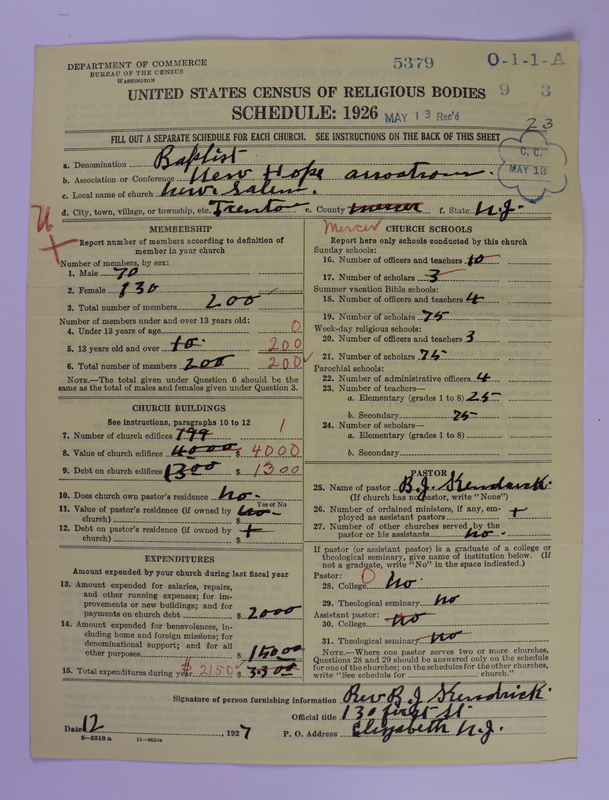 DEPARTMENT OF COMMERCE
BUREAU OF THE CENSUS
WASHINGTON
5379
O-1-1-A
UNITED STATES CENSUS OF RELIGIOUS BODIES
9 3
SCHEDULE: 1926
MAY 13 Rec'd
23
FILL OUT A SEPARATE SCHEDULE FOR EACH CHURCH. SEE INSTRUCTIONS ON THE BACK OF THIS SHEET
C. C.
MAY 18
a. Denomination Baptist
b. Association or Conference New Hope
c. Local name of church New Salem.
d. City, town, village, or township, etc. Trenton e. County Mercer f. State N.J.
Mercer
MEMBERSHIP
Report number of members according to definition of
member in your church
Number of members, by sex:
1. Male 70
2. Female 130
3. Total number of members 200
Number of members under and over 13 years old:
4. Under 13 years of age 0
5. 13 years old and over 10 200
6. Total number of members 200 200
NOTE.—The total given under Question 6 should be the
same as the total of males and females given under Question 3.
CHURCH BUILDINGS
See instructions, paragraphs 10 to 12
7. Number of church edifices 199 1
8. Value of church edifices 4000 $ 4000
9. Debt on church edifices 1300 $ 1300
10. Does church own pastor's residence No-
Yes or No
11. Value of pastor's residence (if owned by
church) $ No-
12. Debt on pastor's residence (if owned by
church) $
EXPENDITURES
Amount expended by your church during last fiscal year
13. Amount expended for salaries, repairs,
and other running expenses; for im-
provements or new buildings; and for
payments on church debt $ 2000
14. Amount expended for benevolences, in-
cluding home and foreign missions; for
denominational support; and for all
other purposes $ 15000
15. Total expenditures during year $ 2150 $
CHURCH SCHOOLS
Report here only schools conducted by this church
Sunday schools:
16. Number of officers and teachers 10
17. Number of scholars 3
Summer vacation Bible schools:
18. Number of officers and teachers 4
19. Number of scholars 75
Week-day religious schools:
20. Number of officers and teachers 3
21. Number of scholars 75
Parochial schools:
22. Number of administrative officers 4
23. Number of teachers—
a. Elementary (grades 1 to 8) 25
b. Secondary 75
24. Number of scholars—
a. Elementary (grades 1 to 8)
b. Secondary
PASTOR
25. Name of pastor B.J. Kendrick
(If church has no pastor, write "None")
26. Number of ordained ministers, if any, em-
ployed as assistant pastors
27. Number of other churches served by the
pastor or his assistants No-
If pastor (or assistant pastor) is a graduate of a college or
theological seminary, give name of institution below. (If
not a graduate, write "No" in the space indicated.)
Pastor:
28. College No.
29. Theological seminary No
Assistant pastor:
30. College No
31. Theological seminary No
NOTE.—Where one pastor serves two or more churches,
Questions 28 and 29 should be answered only on the schedule
for one of the churches; on the schedules for the other churches,
write "See schedule for church."
Signature of person furnishing information Rev B J Kendrick
Official title 130 first St
Date 12, 1927
P. O. Address Elizabeth N.J.
8—5518 a